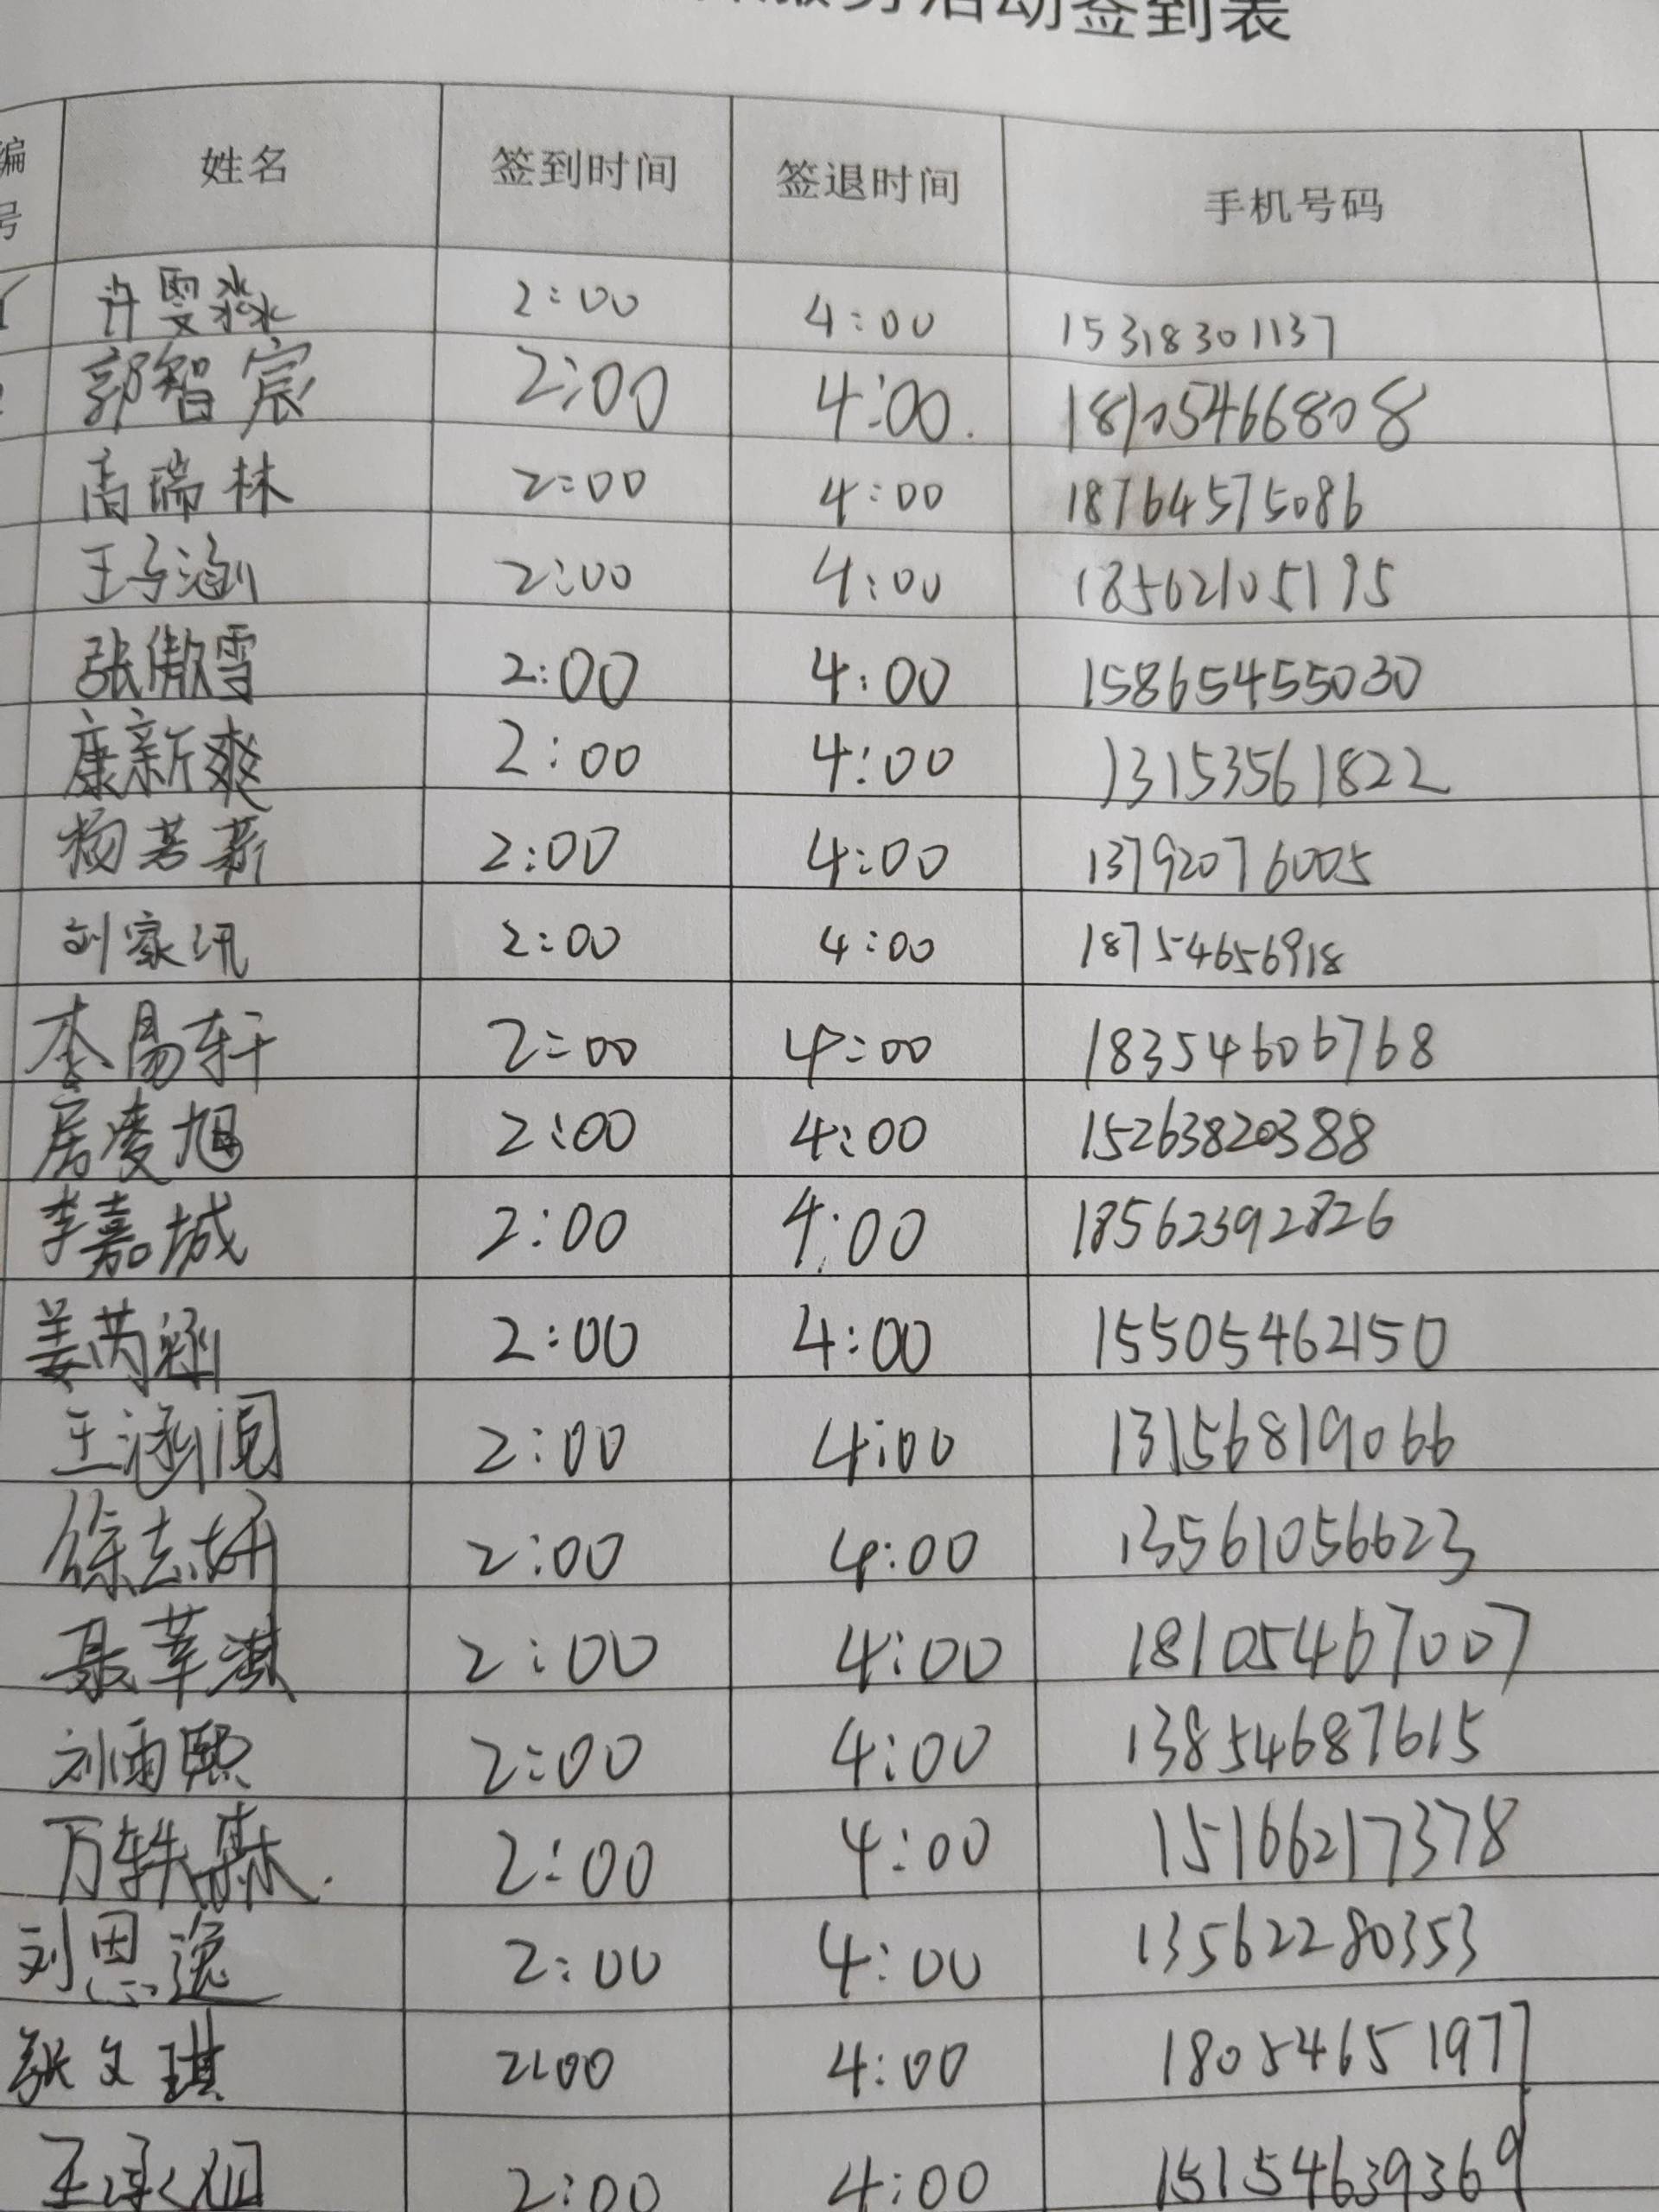 服务活动签到表
编号 姓名 签到时间 签退时间 手机号码
1 许雯淼 2:00 4:00 15318301137
郭智宸 2:00 4:00 18105466808
高瑞林 2:00 4:00 18764575086
王子涵 2:00 4:00 18562105195
张傲雪 2:00 4:00 15865455030
康新爽 2:00 4:00 13153561822
杨若菥 2:00 4:00 13792076005
刘家汛 2:00 4:00 18754656918
李易轩 2:00 4:00 18354606768
房凌旭 2:00 4:00 15263820388
李嘉城 2:00 4:00 18562392826
姜芮涵 2:00 4:00 15505462150
王涵 2:00 4:00 13156819066
徐志妍 2:00 4:00 13561056623
聂莘淇 2:00 4:00 18105467007
刘雨熙 2:00 4:00 13854687615
万轶森 2:00 4:00 15166217378
刘恩逸 2:00 4:00 13562280353
张文琪 2:00 4:00 18054651977
王 2:00 4:00 15154639369